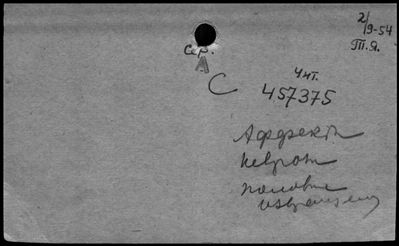 2/9-54
Т.Я.
Сер.
А
С
Чит.
457375
Аффект
Невроз
половые
извращения